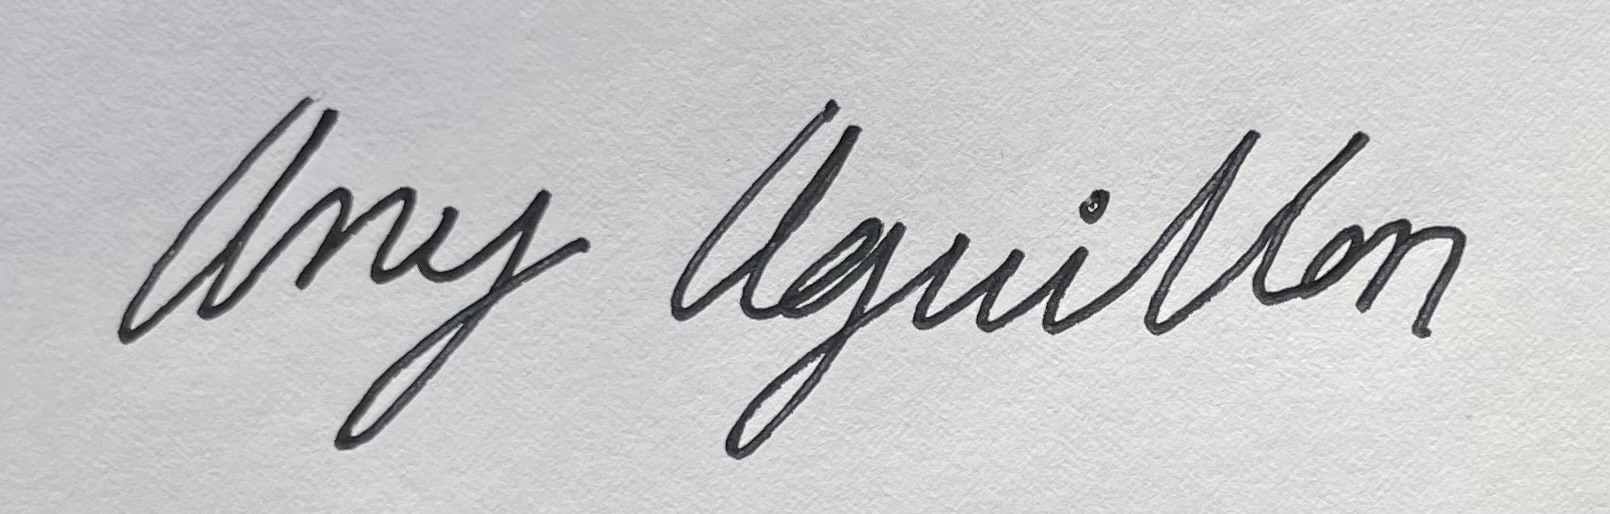 Any Aguillon